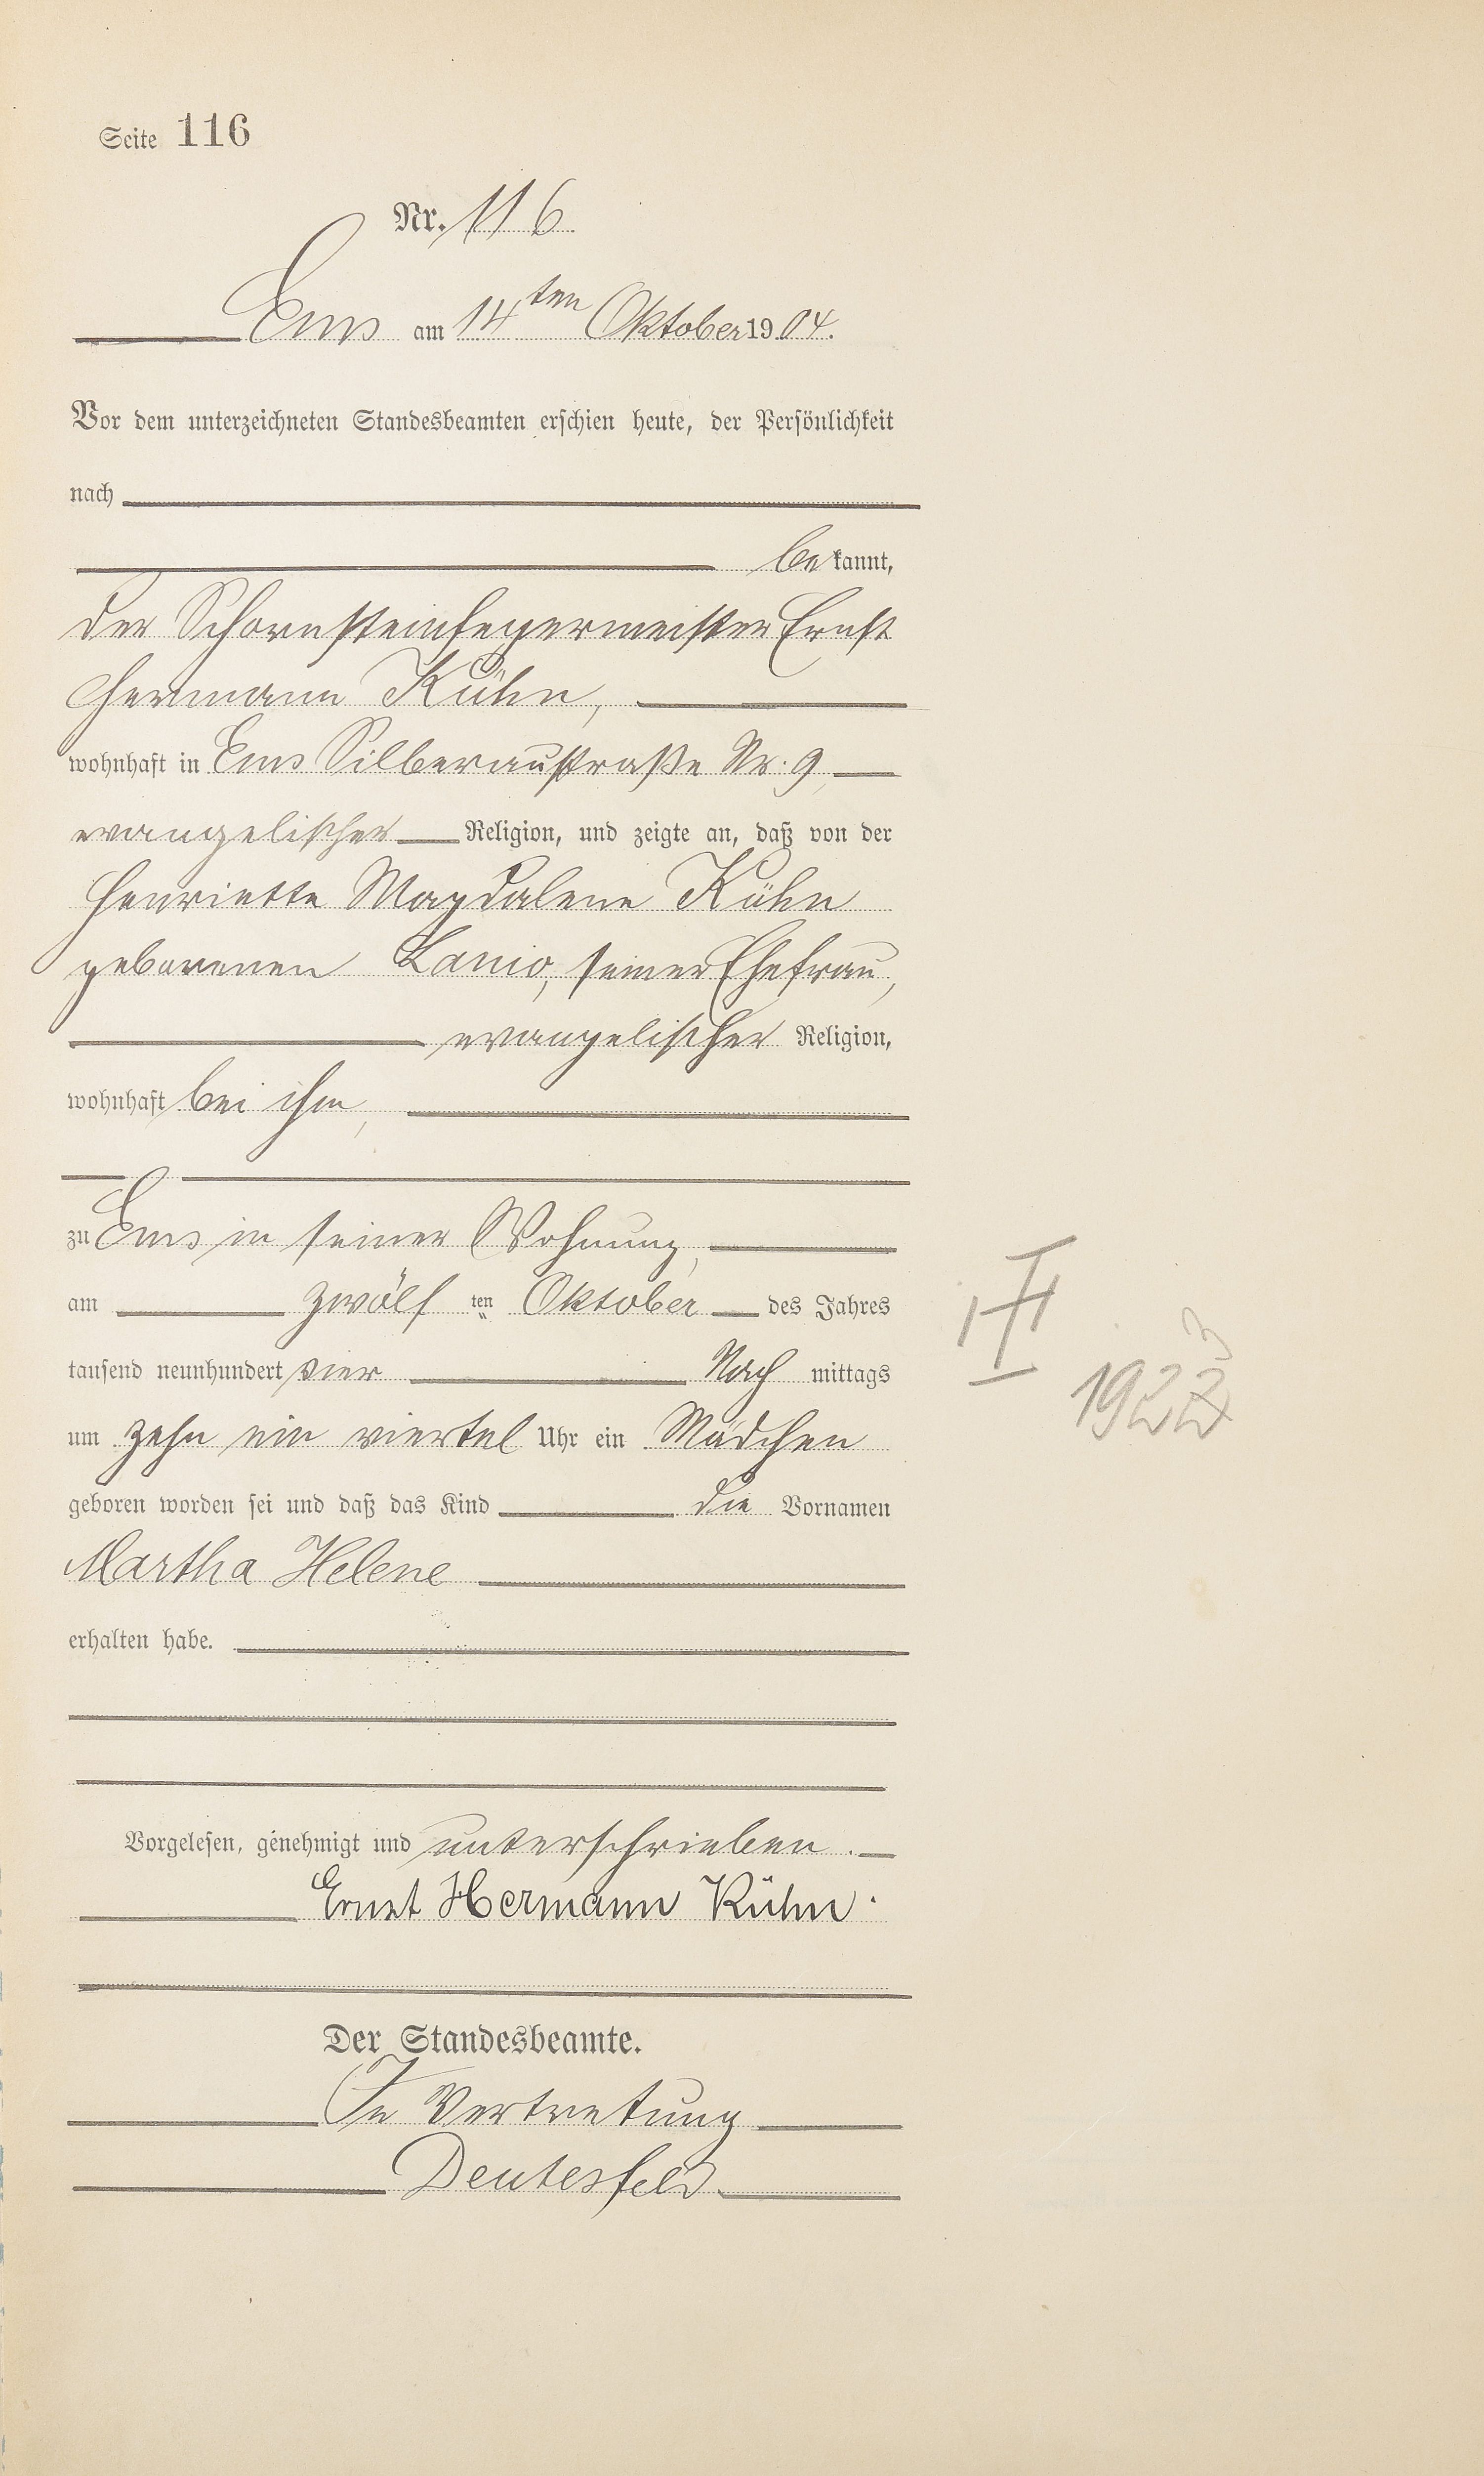 Seite 116
Nr. 116
Ems am 14ten Oktober 1904.
Vor dem unterzeichneten Standesbeamten erschien heute, der Persönlichkeit
nach
bekannt,
der Schornsteinfegermeister Ernst
Hermann Kühn,
wohnhaft in Ems Silberaustraße Nr. 9,
evangelischer Religion, und zeigte an, daß von der
Henriette Magdalene Kühn
geborenen Lanio, seiner Ehefrau,
evangelischer Religion,
wohnhaft bei ihm,
zu Ems in seiner Wohnung,
am zwölf ten Oktober des Jahres
tausend neunhundert vier Nach mittags
um zehn ein viertel Uhr ein Mädchen
geboren worden sei und daß das Kind die Vornamen
Martha Helene
erhalten habe.
Vorgelesen, genehmigt und unterschrieben.
Ernst Hermann Kühn.
Der Standesbeamte.
In Vertretung
Deutesfeld